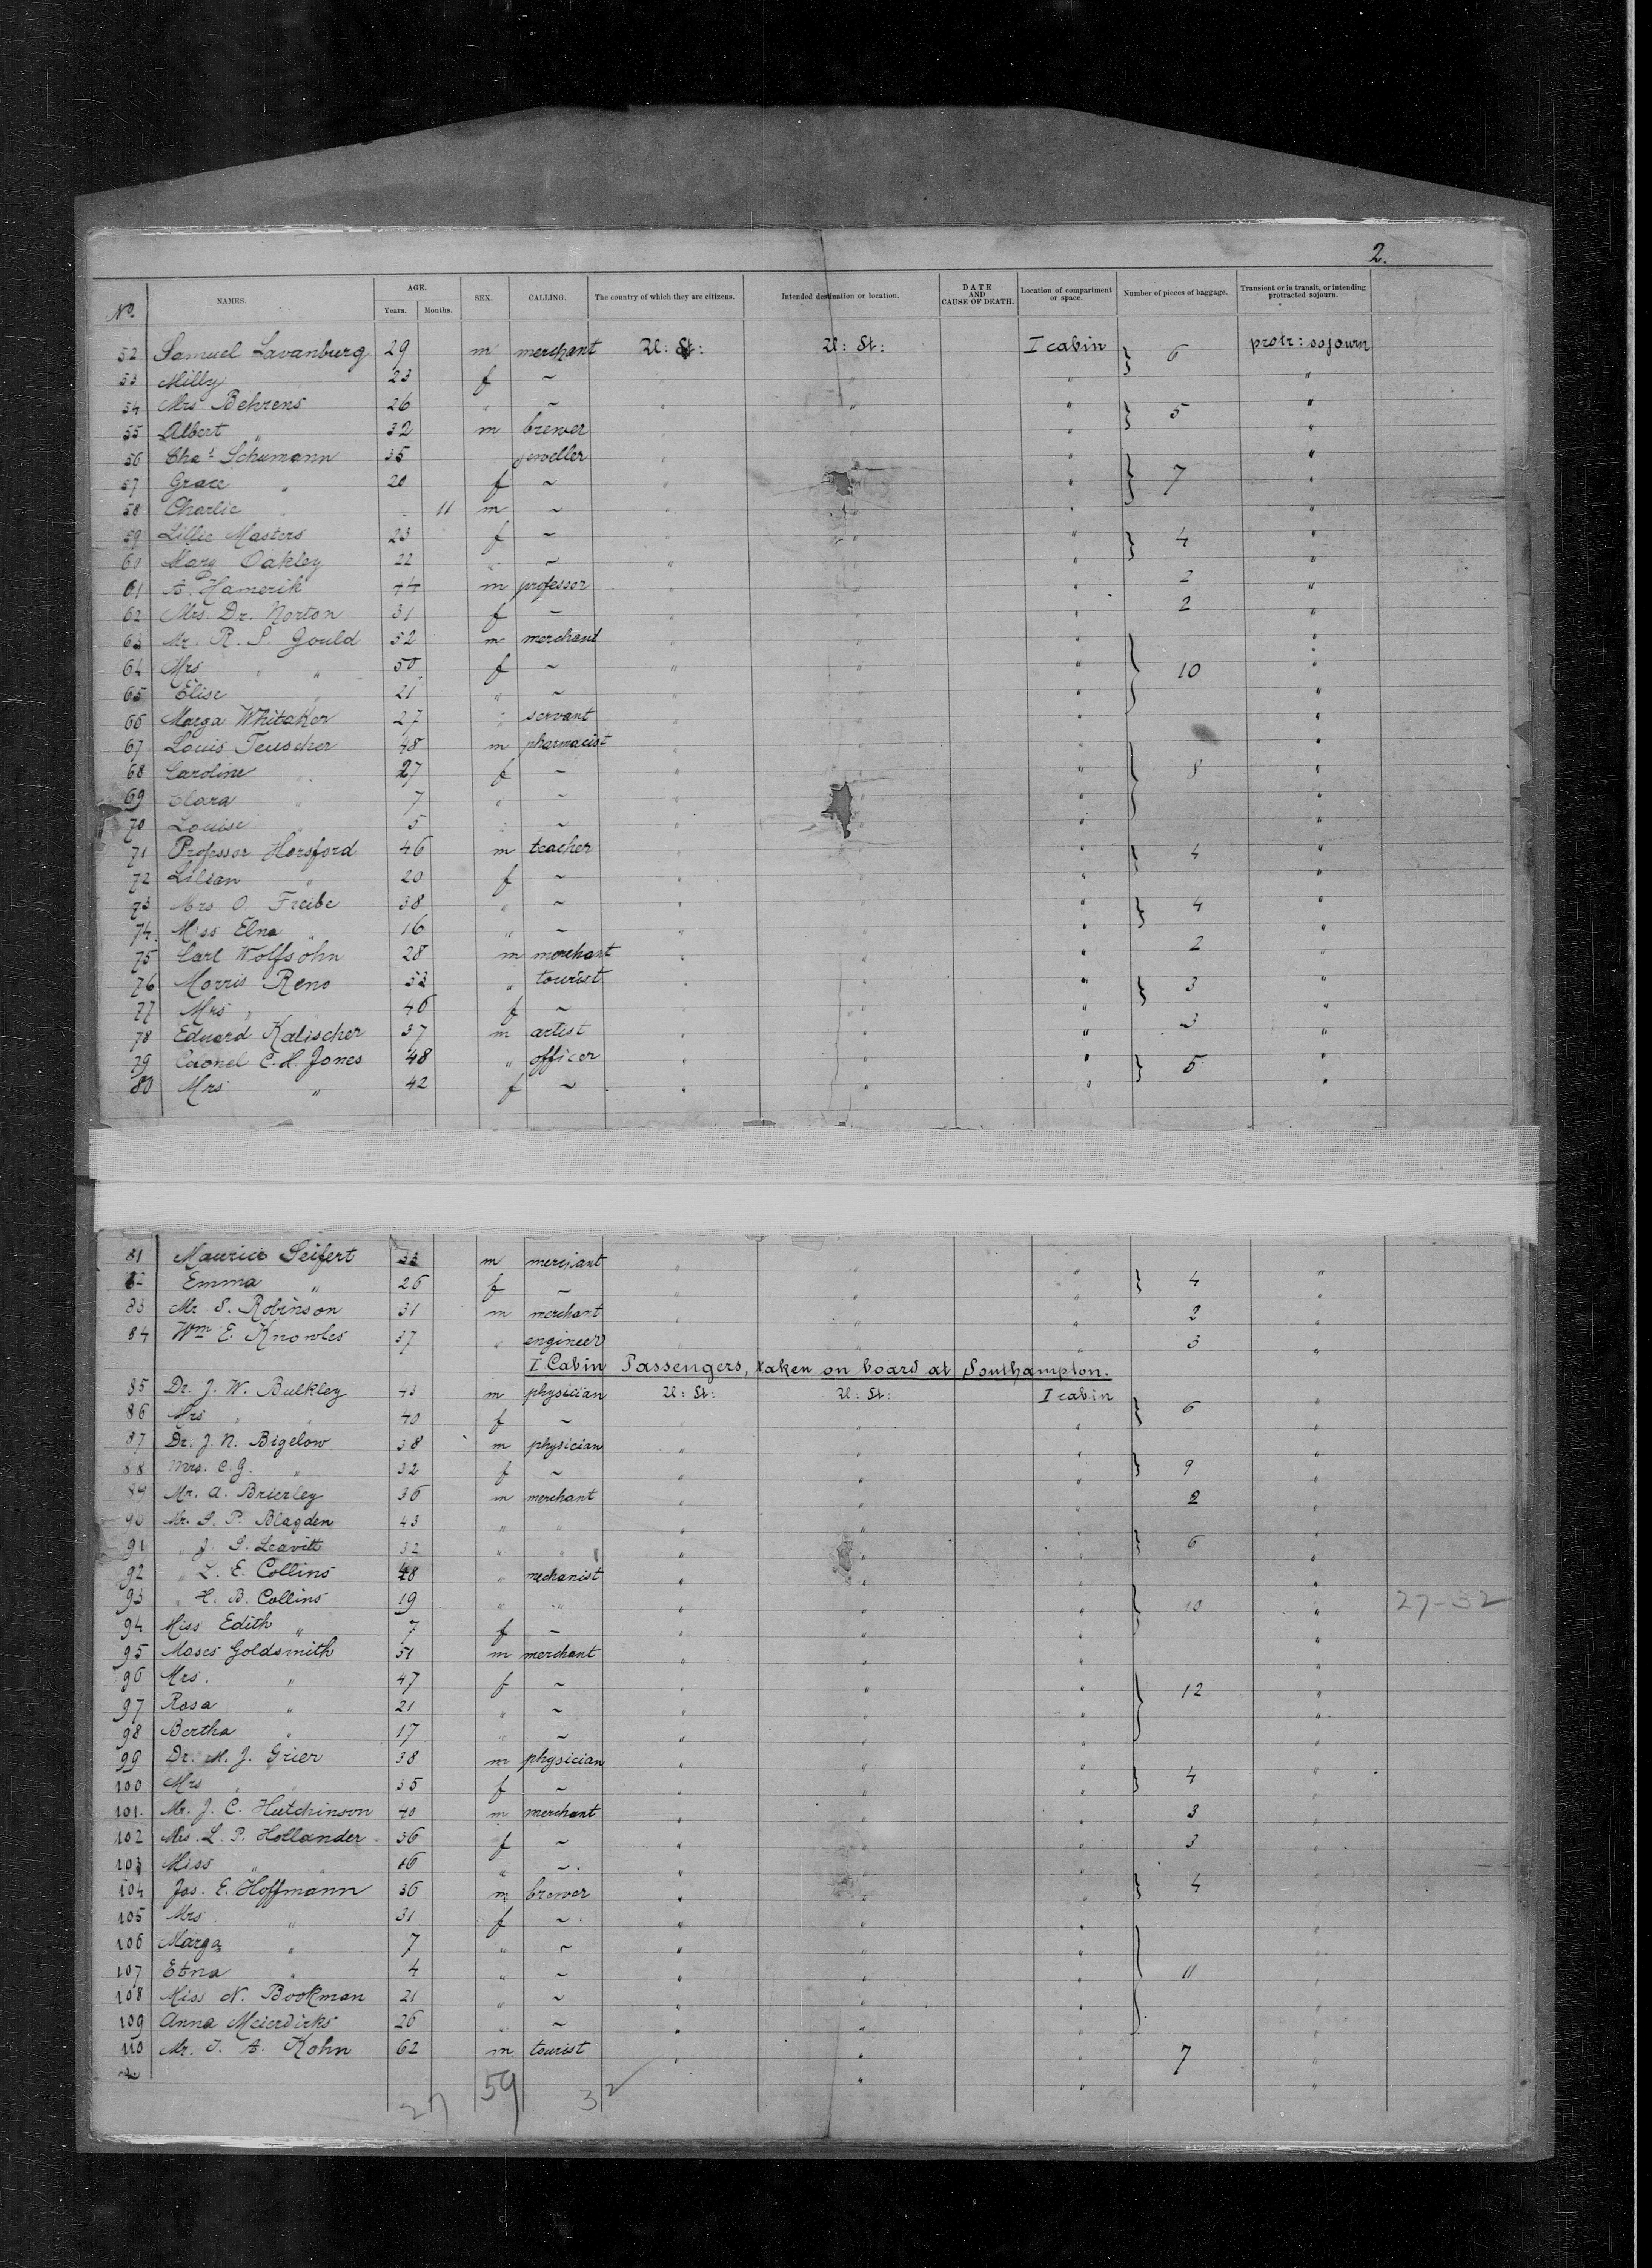 2.
No. NAMES. AGE. Years. Months. SEX. CALLING. The country of which they are citizens. Intended destination or location. DATE AND CAUSE OF DEATH. Location of compartment or space. Number of pieces of baggage. Transient or in transit, or intending protracted sojourn.
52 Samuel Lavanburg 29 m merchant U: St: U: St: I cabin } 6 protr: sojourn
53 Milly 23 f ~ " " "
54 Mrs Behrens 26 " ~ " " " } 5 "
55 Albert " 32 m brewer " "
56 Chas Schumann 35 jeweller " " "
57 Grace " 20 f ~ " " } 7 "
58 Charlie " 11 m ~ " " "
59 Lillie Masters 23 f ~ " " } 4 "
60 Mary Oakley 22 " ~ " " "
61 A. Hamerik 44 m professor " " 2 "
62 Mrs. Dr. Norton 31 f ~ " " 2 "
63 Mr. R. S. Gould 52 m merchant " " "
64 Mrs " " 50 f ~ " " " } 10 "
65 Elise " 21 " ~ " " " "
66 Marga Whitaker 27 " servant " " "
67 Louis Teuscher 48 m pharmacist " " "
68 Caroline " 27 f ~ " " } 8 "
69 Clara " 7 " ~ " " "
70 Louise " 5 " ~ " " "
71 Professor Horsford 46 m teacher " " } 4 "
72 Lilian " 20 f ~ " " "
73 Mrs O Freibe 38 " ~ " " } 4 "
74. Miss Elna " 16 " ~ " " "
75 Carl Wolfsohn 28 m merchant " " 2 "
76 Morris Reno 53 " tourist " " } 3 "
77 Mrs " 46 f ~ " " "
78 Eduard Kalischer 37 m artist " " " 3 "
79 Colonel C. H. Jones 48 " officer " " " } 5 "
80 Mrs " 42 f ~ " " " "
81 Maurice Seifert 33 m merchant " " " "
82 Emma " 26 f ~ " " " } 4 "
83 Mr S. Robinson 31 m merchant " " " 2 "
84 Wm E. Knowles 37 " engineer " " " 3 "
I Cabin Passengers, taken on board at Southampton.
85 Dr. J. W. Bulkley 43 m physician U: St: U: St: I cabin "
86 Mrs " " 40 f ~ " " } 6 "
87 Dr. J. N. Bigelow 38 m physician " " " "
88 Mrs. C. G. " 32 f ~ " " " } 9 "
89 Mr. A. Brierley 36 m merchant " " " 2 "
90 Mr. S. P. Blagden 43 " " " " "
91 " J. S. Leavitt 32 " " " " " } 6 "
92 " L. E. Collins 48 " mechanist " " " "
93 " H. B. Collins 19 " " " " " } 10 " 27-32
94 Miss Edith " 7 f ~ " " " "
95 Moses Goldsmith 51 m merchant " " " "
96 Mrs. " 47 f ~ " " " } 12 "
97 Rosa " 21 " ~ " " " "
98 Bertha " 17 " ~ " " " "
99 Dr. M. J. Grier 38 m physician " " " "
100 Mrs " " 35 f ~ " " " } 4 "
101. Mr. J. C. Hutchinson 40 m merchant " " " 3 "
102 Mrs. L. P. Hollander 36 f ~ " " " 3 "
103 Miss " " 16 " ~ " " "
104 Jos. E. Hoffmann 36 m brewer " " " } 4 "
105 Mrs " 31 f ~ " " " "
106 Marga " 7 " ~ " " " "
107 Etna " 4 " ~ " " " } 11 "
108 Miss N. Bookman 21 " ~ " " " "
109 Anna Meierdirks 26 " ~ " " " "
110 Mr. J. A. Kohn 62 m tourist " " " 7 "
27 59 32